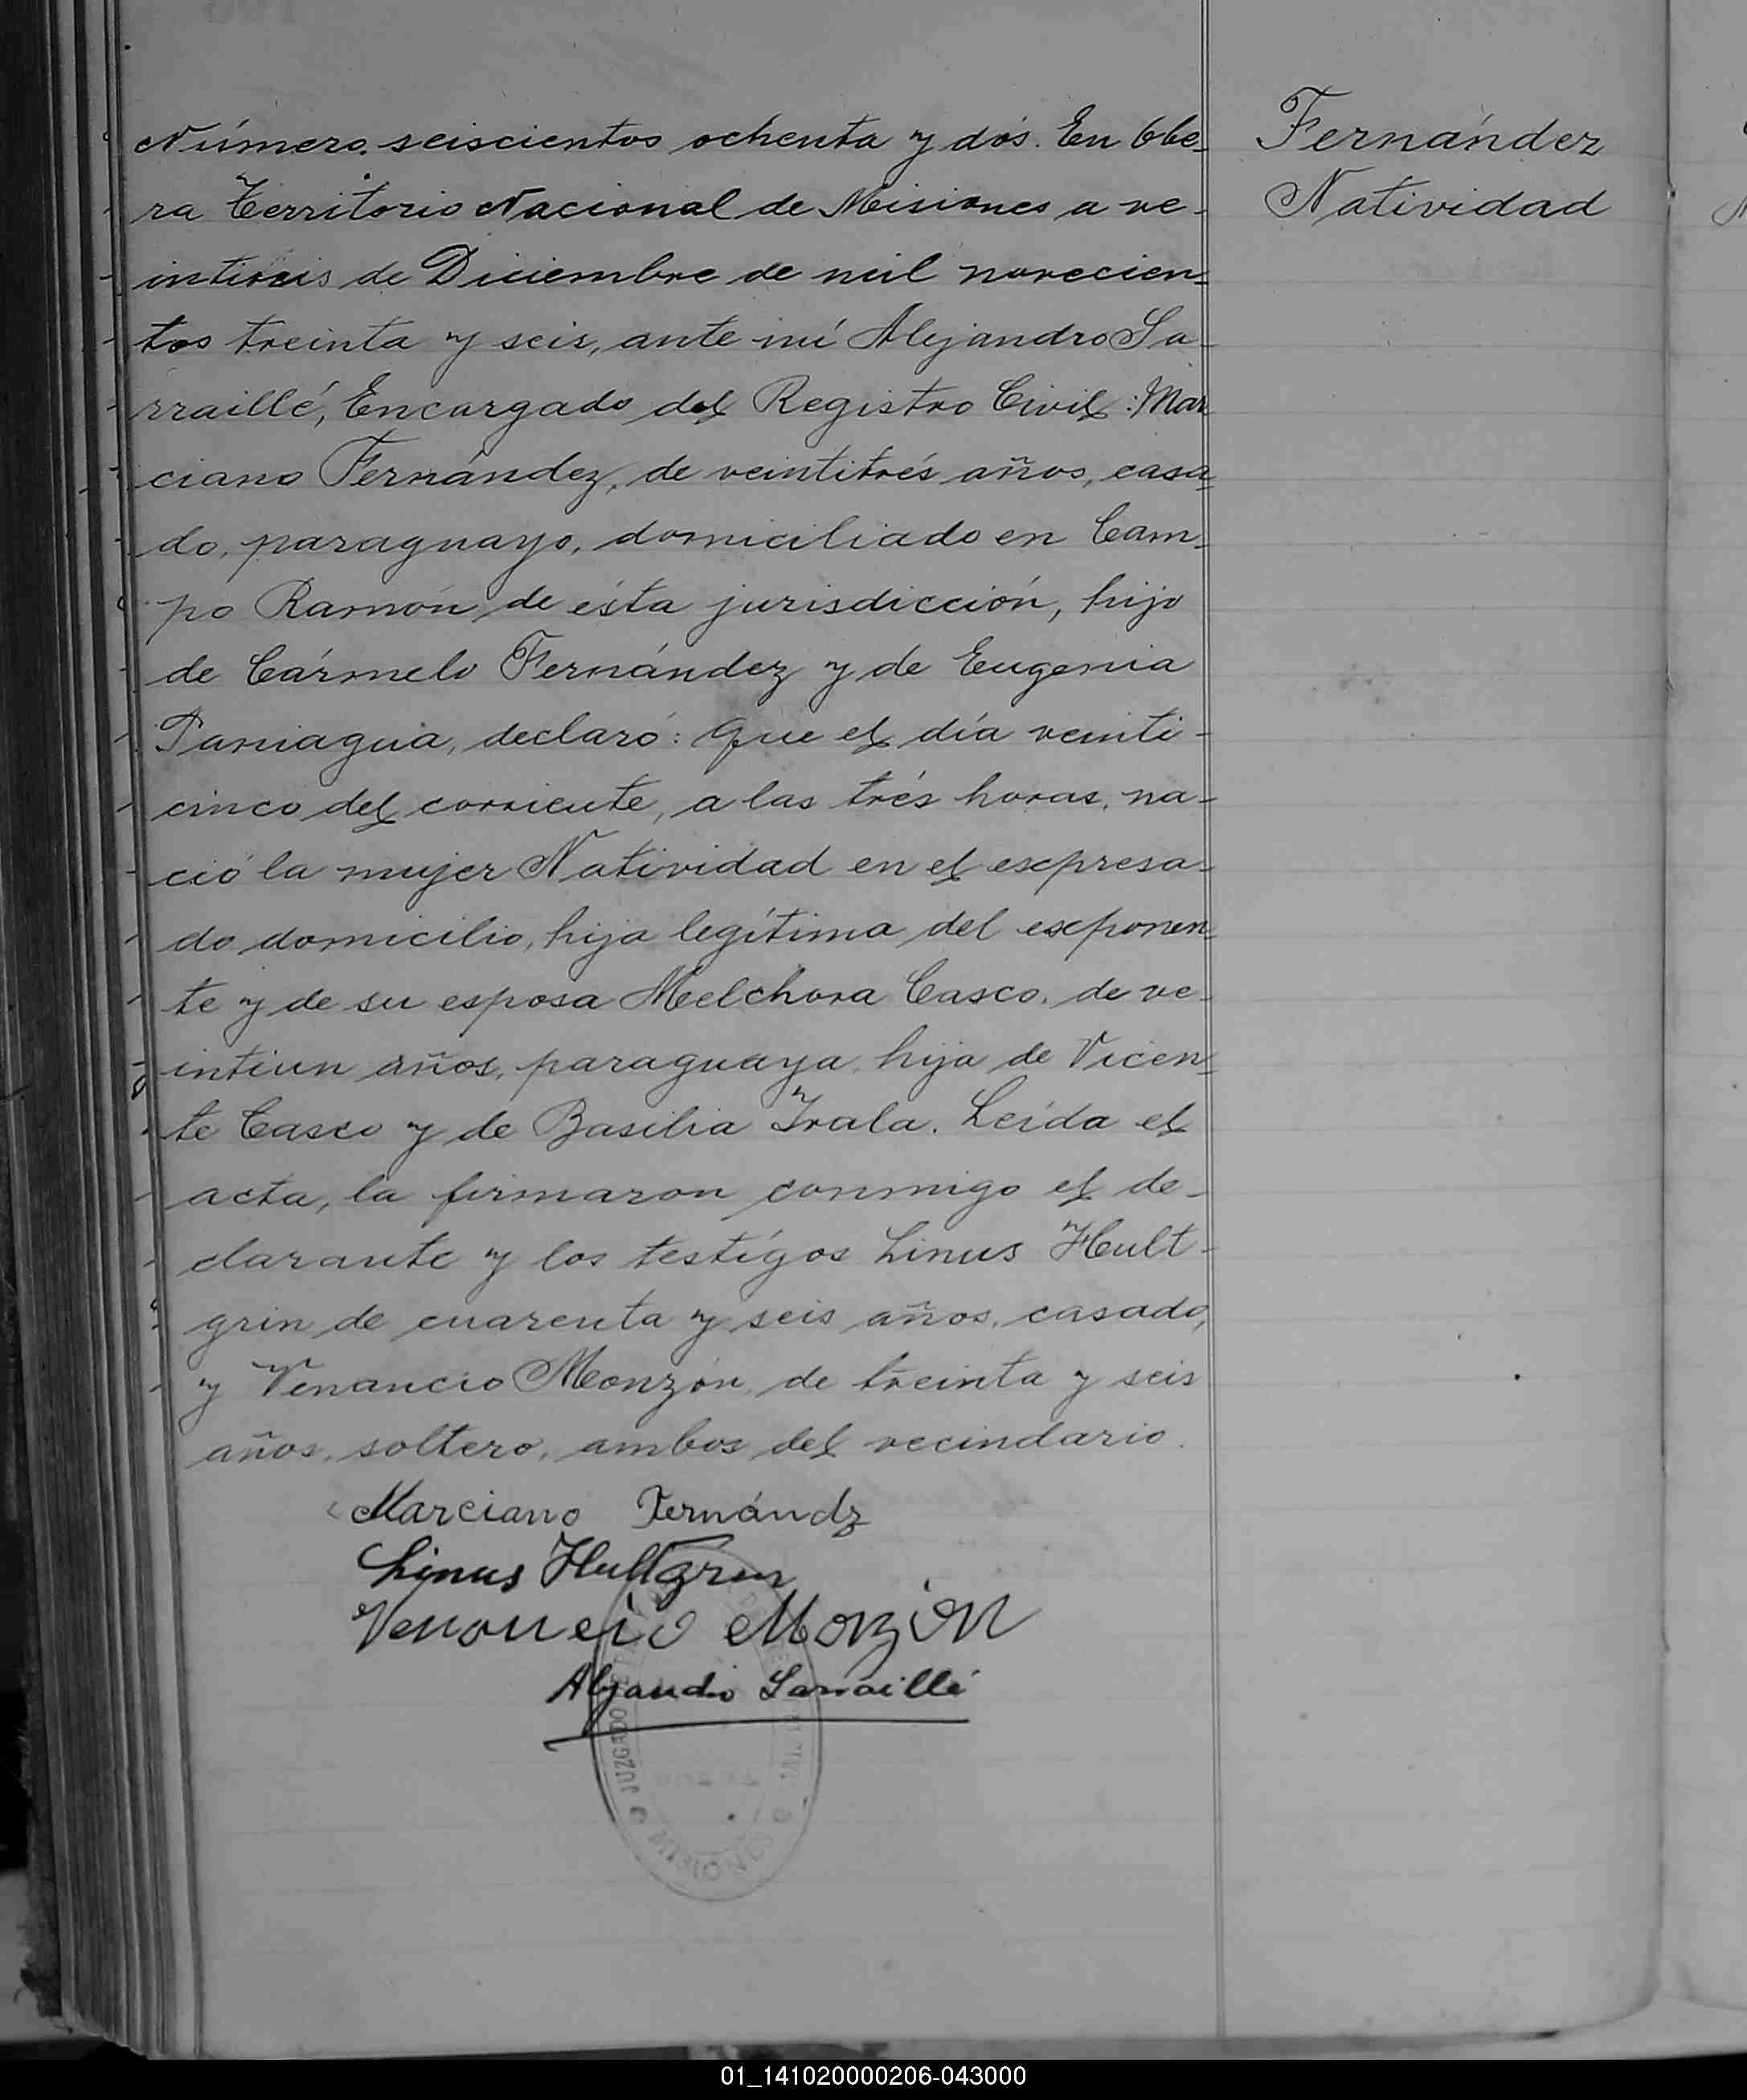 Número seiscientos ochenta y dós. En Obe-
ra Territorio Nacional de Misiones a ve-
intiseis de Diciembre de mil novecien-
tos treinta y seis, ante mí Alejandro La-
rraillé, Encargado del Registro Civil: Mar
ciano Fernández, de veintitrés años, casa-
do, paraguayo, domiciliado en Cam-
po Ramón de ésta jurisdicción, hijo
de Cármelo Fernández y de Eugenia
Paniagua, declaró: Que el día veinti-
cinco del corriente, a las trés horas, na-
ció la mujer Natividad en el expresa-
do domicilio, hija legítima del exponen-
te y de su esposa Melchora Casco, de ve-
intiun años, paraguaya, hija de Vicen-
te Casco y de Basilia Irala. Leída el
acta, la firmaron conmigo el de-
clarante y los testígos Linus Hult-
grin de cuarenta y seis años, casado,
y Venancio Monzón, de treinta y seis
años, soltero, ambos del vecindario.
Marciano Fernándz
Linus Hultgren
Venancio Monzón
Alejandro Larraillé
JUZGADO
MISIONES
Fernández
Natividad
01_141020000206-043000